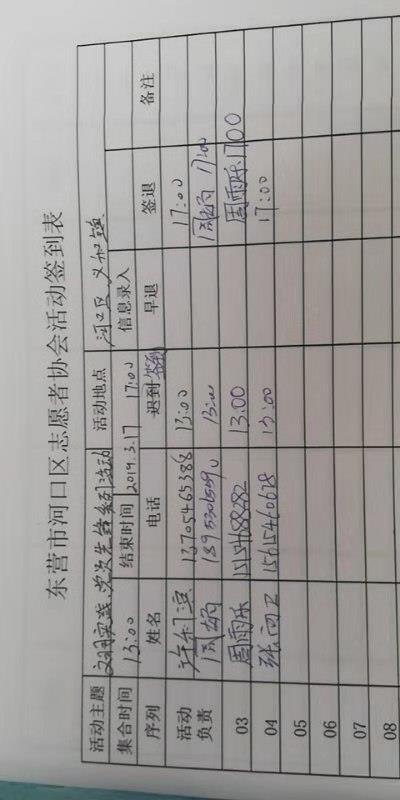 东营市河口区志愿者协会活动签到表
活动主题 文明实践、党员先锋系列活动 活动地点 河口区 义和镇
集合时间 13:00 结束时间 2019.3.17 17:00 信息录入
序列 姓名 电话 迟到 签到 早退 签退 备注
活动 13705465388 13:00 17:00
负责 周炳 13:00 周炳 17:00
03 周雨乐 13:00 周雨乐 17:00
04 15615460678 13:00 17:00
05
06
07
08